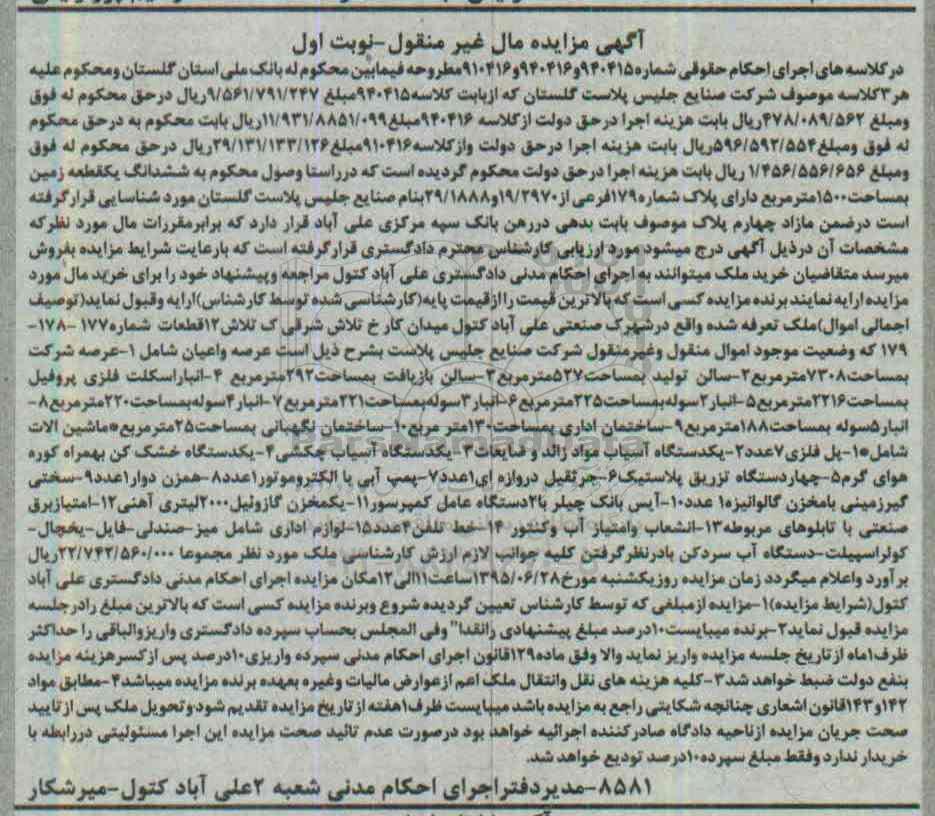 آگهی مزایده مال غیر منقول-نوبت اول
درکلاسه های اجرای احکام حقوقی شماره ۹۴۰۴۱۵و۹۴۰۴۱۶و۹۱۰۴۱۶مطروحه فیمابین محکوم له بانک ملی استان گلستان ومحکوم علیه
هر۳کلاسه موصوف شرکت صنایع جلیس پلاست گلستان که ازبابت کلاسه۹۴۰۴۱۵مبلغ ۹/۵۶۱/۷۹۱/۲۴۷ریال درحق محکوم له فوق
ومبلغ ۴۷۸/۰۸۹/۵۶۲ریال بابت هزینه اجرا درحق دولت ازکلاسه ۹۴۰۴۱۶مبلغ۱۱/۹۳۱/۸۸۵۱/۰۹۹ریال بابت محکوم به درحق محکوم
له فوق ومبلغ۵۹۶/۵۹۲/۵۵۴ریال بابت هزینه اجرا درحق دولت وازکلاسه۹۱۰۴۱۶مبلغ۲۹/۱۳۱/۱۳۳/۱۲۶ریال درحق محکوم له فوق
ومبلغ ۱/۴۵۶/۵۵۶/۶۵۶ ریال بابت هزینه اجرا درحق دولت محکوم گردیده است که درراستا وصول محکوم به ششدانگ یکقطعه زمین
بمساحت۱۵۰۰مترمربع دارای پلاک شماره۱۷۹فرعی از۱۹/۲۹۷۰و۲۹/۱۸۸۸بنام صنایع جلیس پلاست گلستان مورد شناسایی قرارگرفته
است درضمن مازاد چهارم پلاک موصوف بابت بدهی دررهن بانک سپه مرکزی علی آباد قرار دارد که برابرمقررات مال مورد نظرکه
مشخصات آن درذیل آگهی درج میشود مورد ارزیابی کارشناس محترم دادگستری قرارگرفته است که بارعایت شرایط مزایده بفروش
میرسد متقاضیان خرید ملک میتوانند به اجرای احکام مدنی دادگستری علی آباد کتول مراجعه وپیشنهاد خود را برای خرید مال مورد
مزایده ارایه نمایند برنده مزایده کسی است که بالاترین قیمت را ازقیمت پایه(کارشناسی شده توسط کارشناس)ارایه وقبول نماید(توصیف
اجمالی اموال)ملک تعرفه شده واقع درشهرک صنعتی علی آباد کتول میدان کار خ تلاش شرقی ک تلاش۱۲قطعات شماره۱۷۷-۱۷۸-
۱۷۹ که وضعیت موجود اموال منقول وغیرمنقول شرکت صنایع جلیس پلاست بشرح ذیل است عرصه واعیان شامل ۱-عرصه شرکت
بمساحت۷۳۰۸مترمربع۲-سالن تولید بمساحت۵۲۷مترمربع۳-سالن بازیافت بمساحت۲۹۲مترمربع ۴-انباراسکلت فلزی پروفیل
بمساحت۲۲۱۶مترمربع۵-انبار۲سوله بمساحت۲۲۵مترمربع۶-انبار۳سوله بمساحت۲۲۱مترمربع۷-انبار۴سوله بمساحت۲۲۰مترمربع۸-
انبار۵سوله بمساحت۱۸۸مترمربع۹-ساختمان اداری بمساحت۱۳۰متر مربع۱۰-ساختمان نگهبانی بمساحت۲۵مترمربع*ماشین الات
شامل*۱-پل فلزی۷عدد۲-یکدستگاه آسیاب مواد زائد و ضایعات۳-یکدستگاه آسیاب چکشی۴-یکدستگاه خشک کن بهمراه کوره
هوای گرم۵-چهاردستگاه تزریق پلاستیک۶-جرثقیل دروازه ای۱عدد۷-پمپ آبی با الکتروموتور۱عدد۸-همزن دوار۱عدد۹-سختی
گیرزمینی بامخزن گالوانیزه۱ عدد۱۰-آیس بانک چیلر با۲دستگاه عامل کمپرسور۱۱-یکمخزن گازوئیل۲۰۰۰لیتری آهنی۱۲-امتیازبرق
صنعتی با تابلوهای مربوطه۱۳-انشعاب وامتیاز آب وکنتور۱۴-خط تلفن۴عدد۱۵-لوازم اداری شامل میز-صندلی-فایل-یخچال-
کولراسپیلت-دستگاه آب سردکن بادرنظرگرفتن کلیه جوانب لازم ارزش کارشناسی ملک مورد نظر مجموعا ۲۲/۷۴۲/۵۶۰/۰۰۰ریال
برآورد واعلام میگردد زمان مزایده روزیکشنبه مورخ۱۳۹۵/۰۶/۲۸ساعت۱۱الی۱۲مکان مزایده اجرای احکام مدنی دادگستری علی آباد
کتول(شرایط مزایده)۱-مزایده ازمبلغی که توسط کارشناس تعیین گردیده شروع وبرنده مزایده کسی است که بالاترین مبلغ رادرجلسه
مزایده قبول نماید۲-برنده میبایست۱۰درصد مبلغ پیشنهادی رانقدا" وفی المجلس بحساب سپرده دادگستری واریزوالباقی را حداکثر
ظرف۱ماه ازتاریخ جلسه مزایده واریز نماید والا وفق ماده۱۲۹قانون اجرای احکام مدنی سپرده واریزی۱۰درصد پس ازکسرهزینه مزایده
بنفع دولت ضبط خواهد شد۳-کلیه هزینه های نقل وانتقال ملک اعم ازعوارض مالیات وغیره بعهده برنده مزایده میباشد۴-مطابق مواد
۱۴۲و۱۴۳قانون اشعاری چنانچه شکایتی راجع به مزایده باشد میبایست ظرف۱هفته از تاریخ مزایده تقدیم شود وتحویل ملک پس ازتایید
صحت جریان مزایده ازناحیه دادگاه صادرکننده اجرائیه خواهد بود درصورت عدم تائید صحت مزایده این اجرا مسئولیتی دررابطه با
خریدار ندارد وفقط مبلغ سپرده۱۰درصد تودیع خواهد شد.
۸۵۸۱-مدیردفتراجرای احکام مدنی شعبه ۲علی آباد کتول-میرشکار